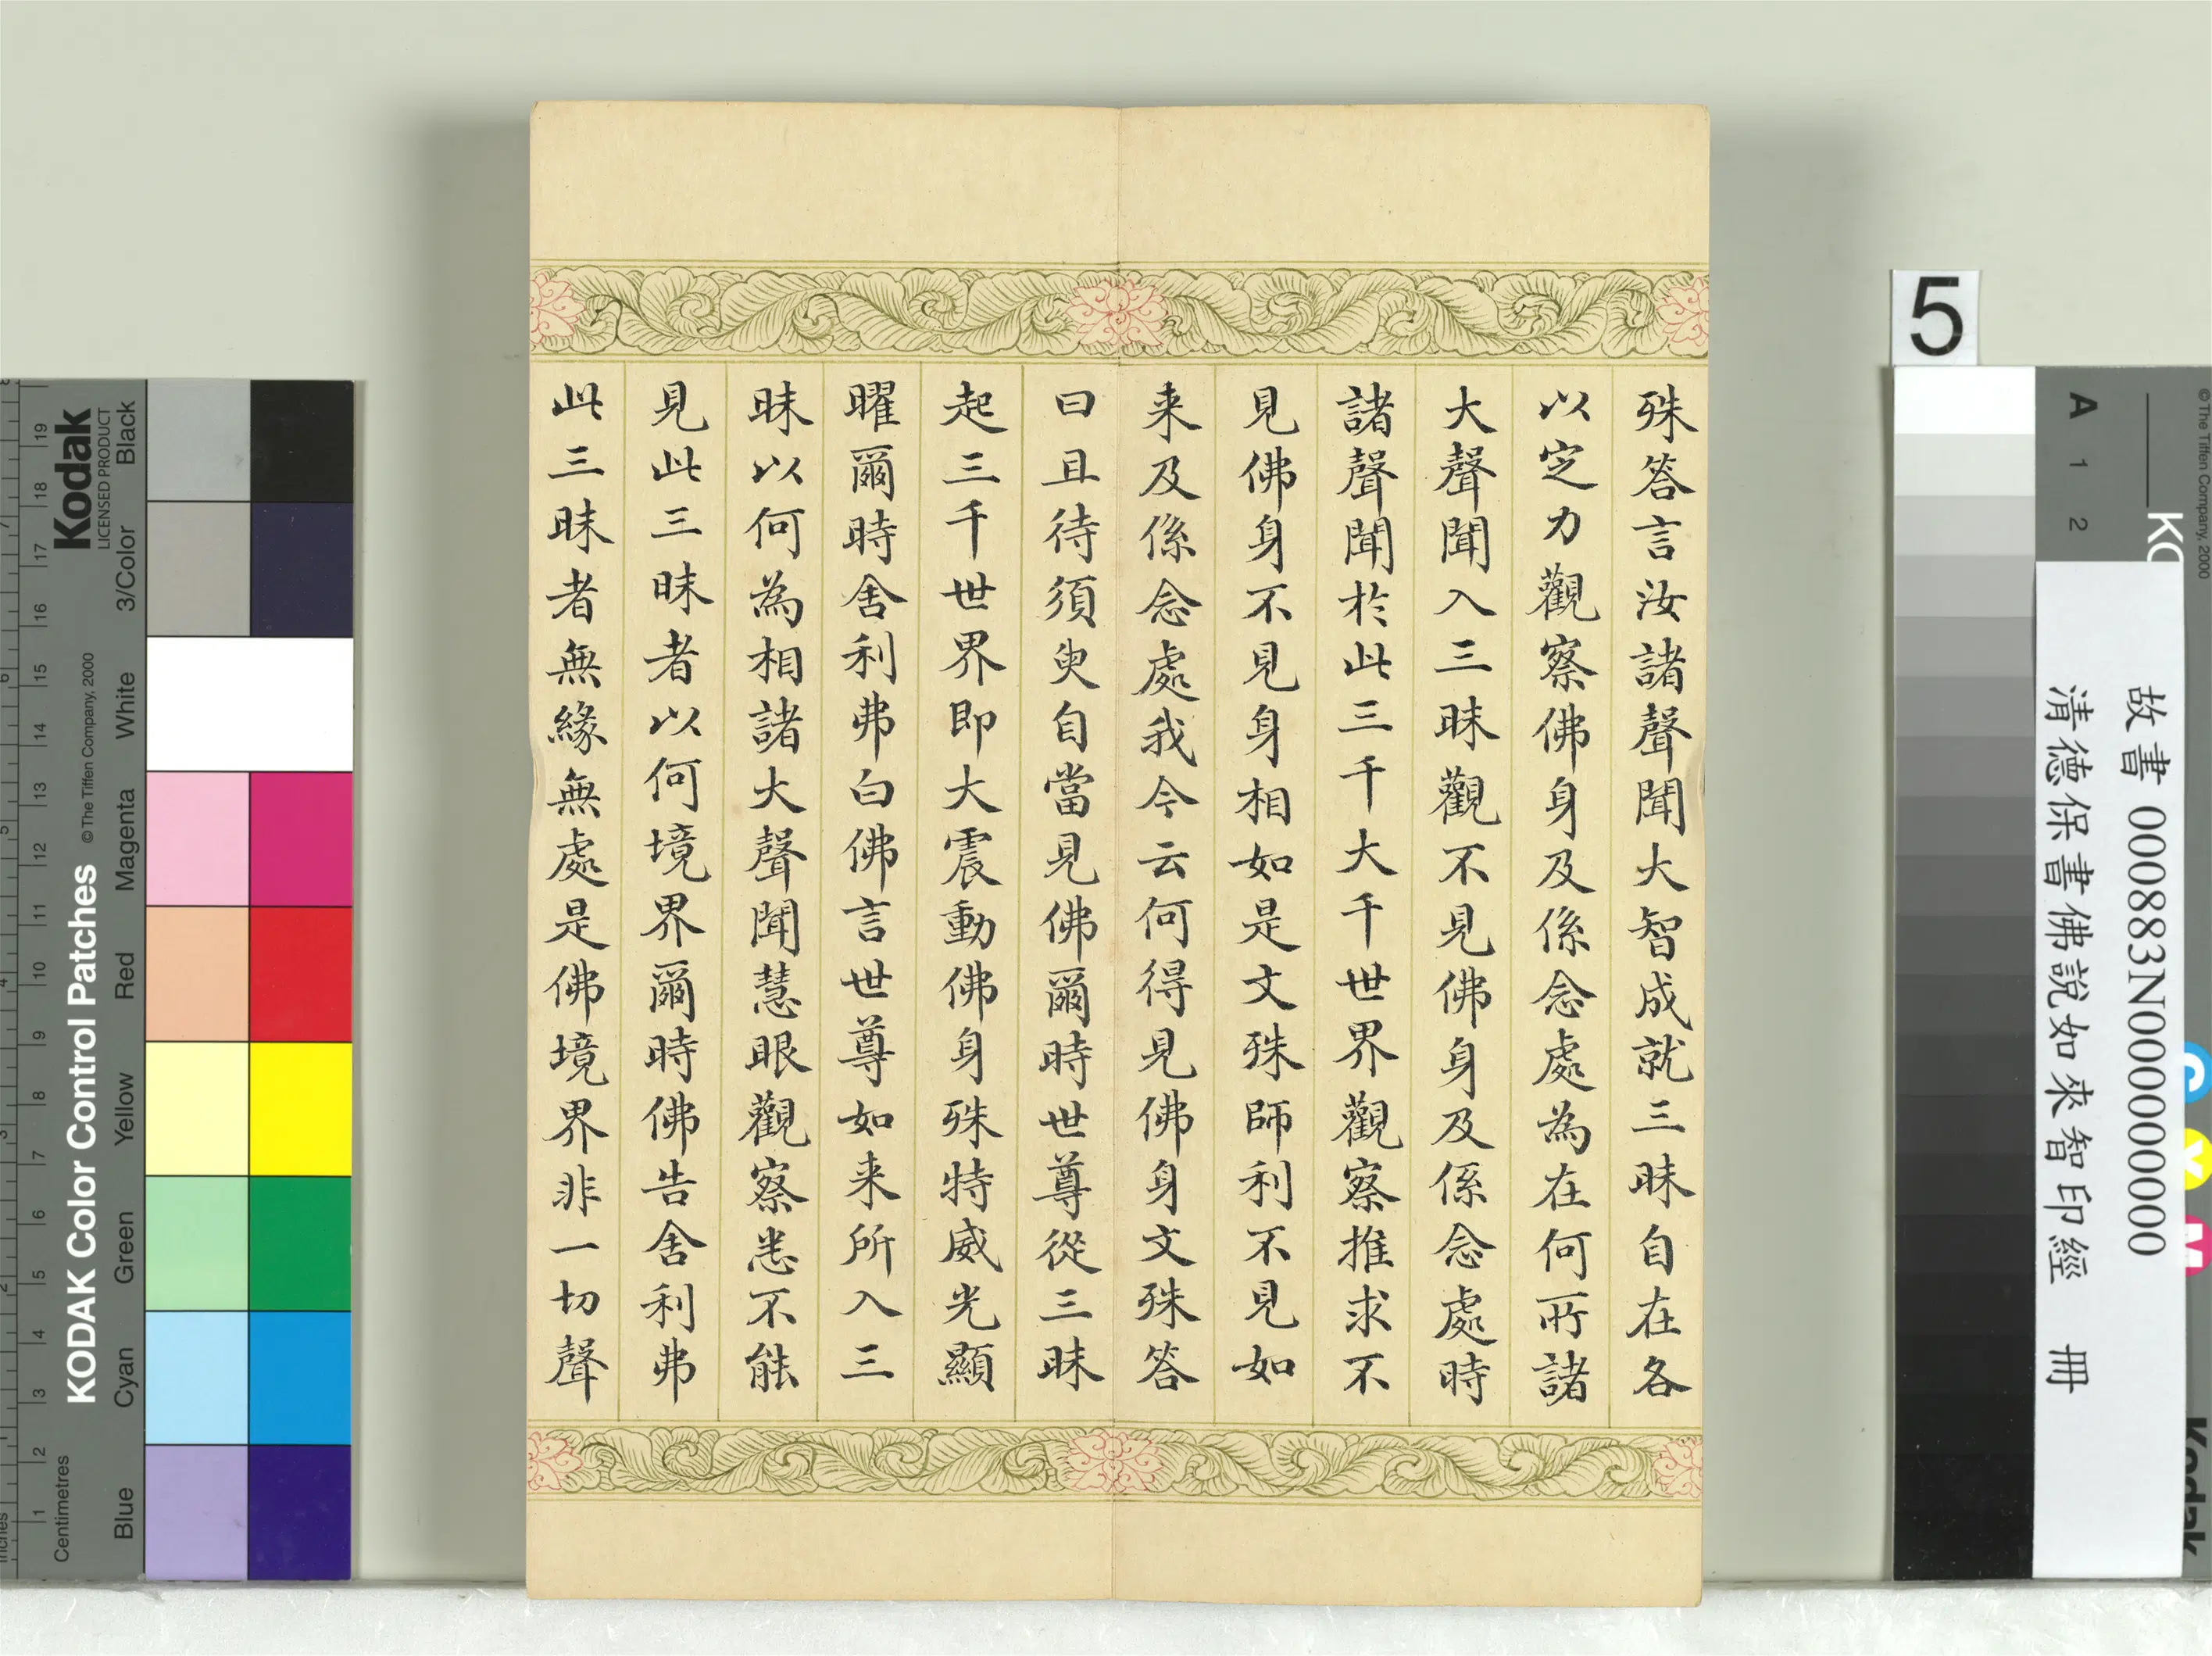 殊答言汝諸聲聞大智成就三昧自在各
以定力觀察佛身及係念處為在何所諸
大聲聞入三昧觀不見佛身及係念處時
諸聲聞於此三千大千世界觀察推求不
見佛身不見身相如是文殊師利不見如
来及係念處我今云何得見佛身文殊答
曰且待須臾自當見佛爾時世尊從三昧
起三千世界即大震動佛身殊特威光顯
曜爾時舍利弗白佛言世尊如来所入三
昧以何為相諸大聲聞慧眼觀察悉不能
見此三昧者以何境界爾時佛告舍利弗
此三昧者無緣無處是佛境界非一切聲
5
故書 000883N000000000
清德保書佛說如來智印經 冊
A 1 2
© The Tiffen Company, 2000
Kodak
LICENSED PRODUCT
KODAK Color Control Patches © The Tiffen Company, 2000
Black
3/Color
White
Magenta
Red
Yellow
Green
Cyan
Blue
Centimetres
19 18 17 16 15 14 13 12 11 10 9 8 7 6 5 4 3 2 1
C
Y
M
Kodak